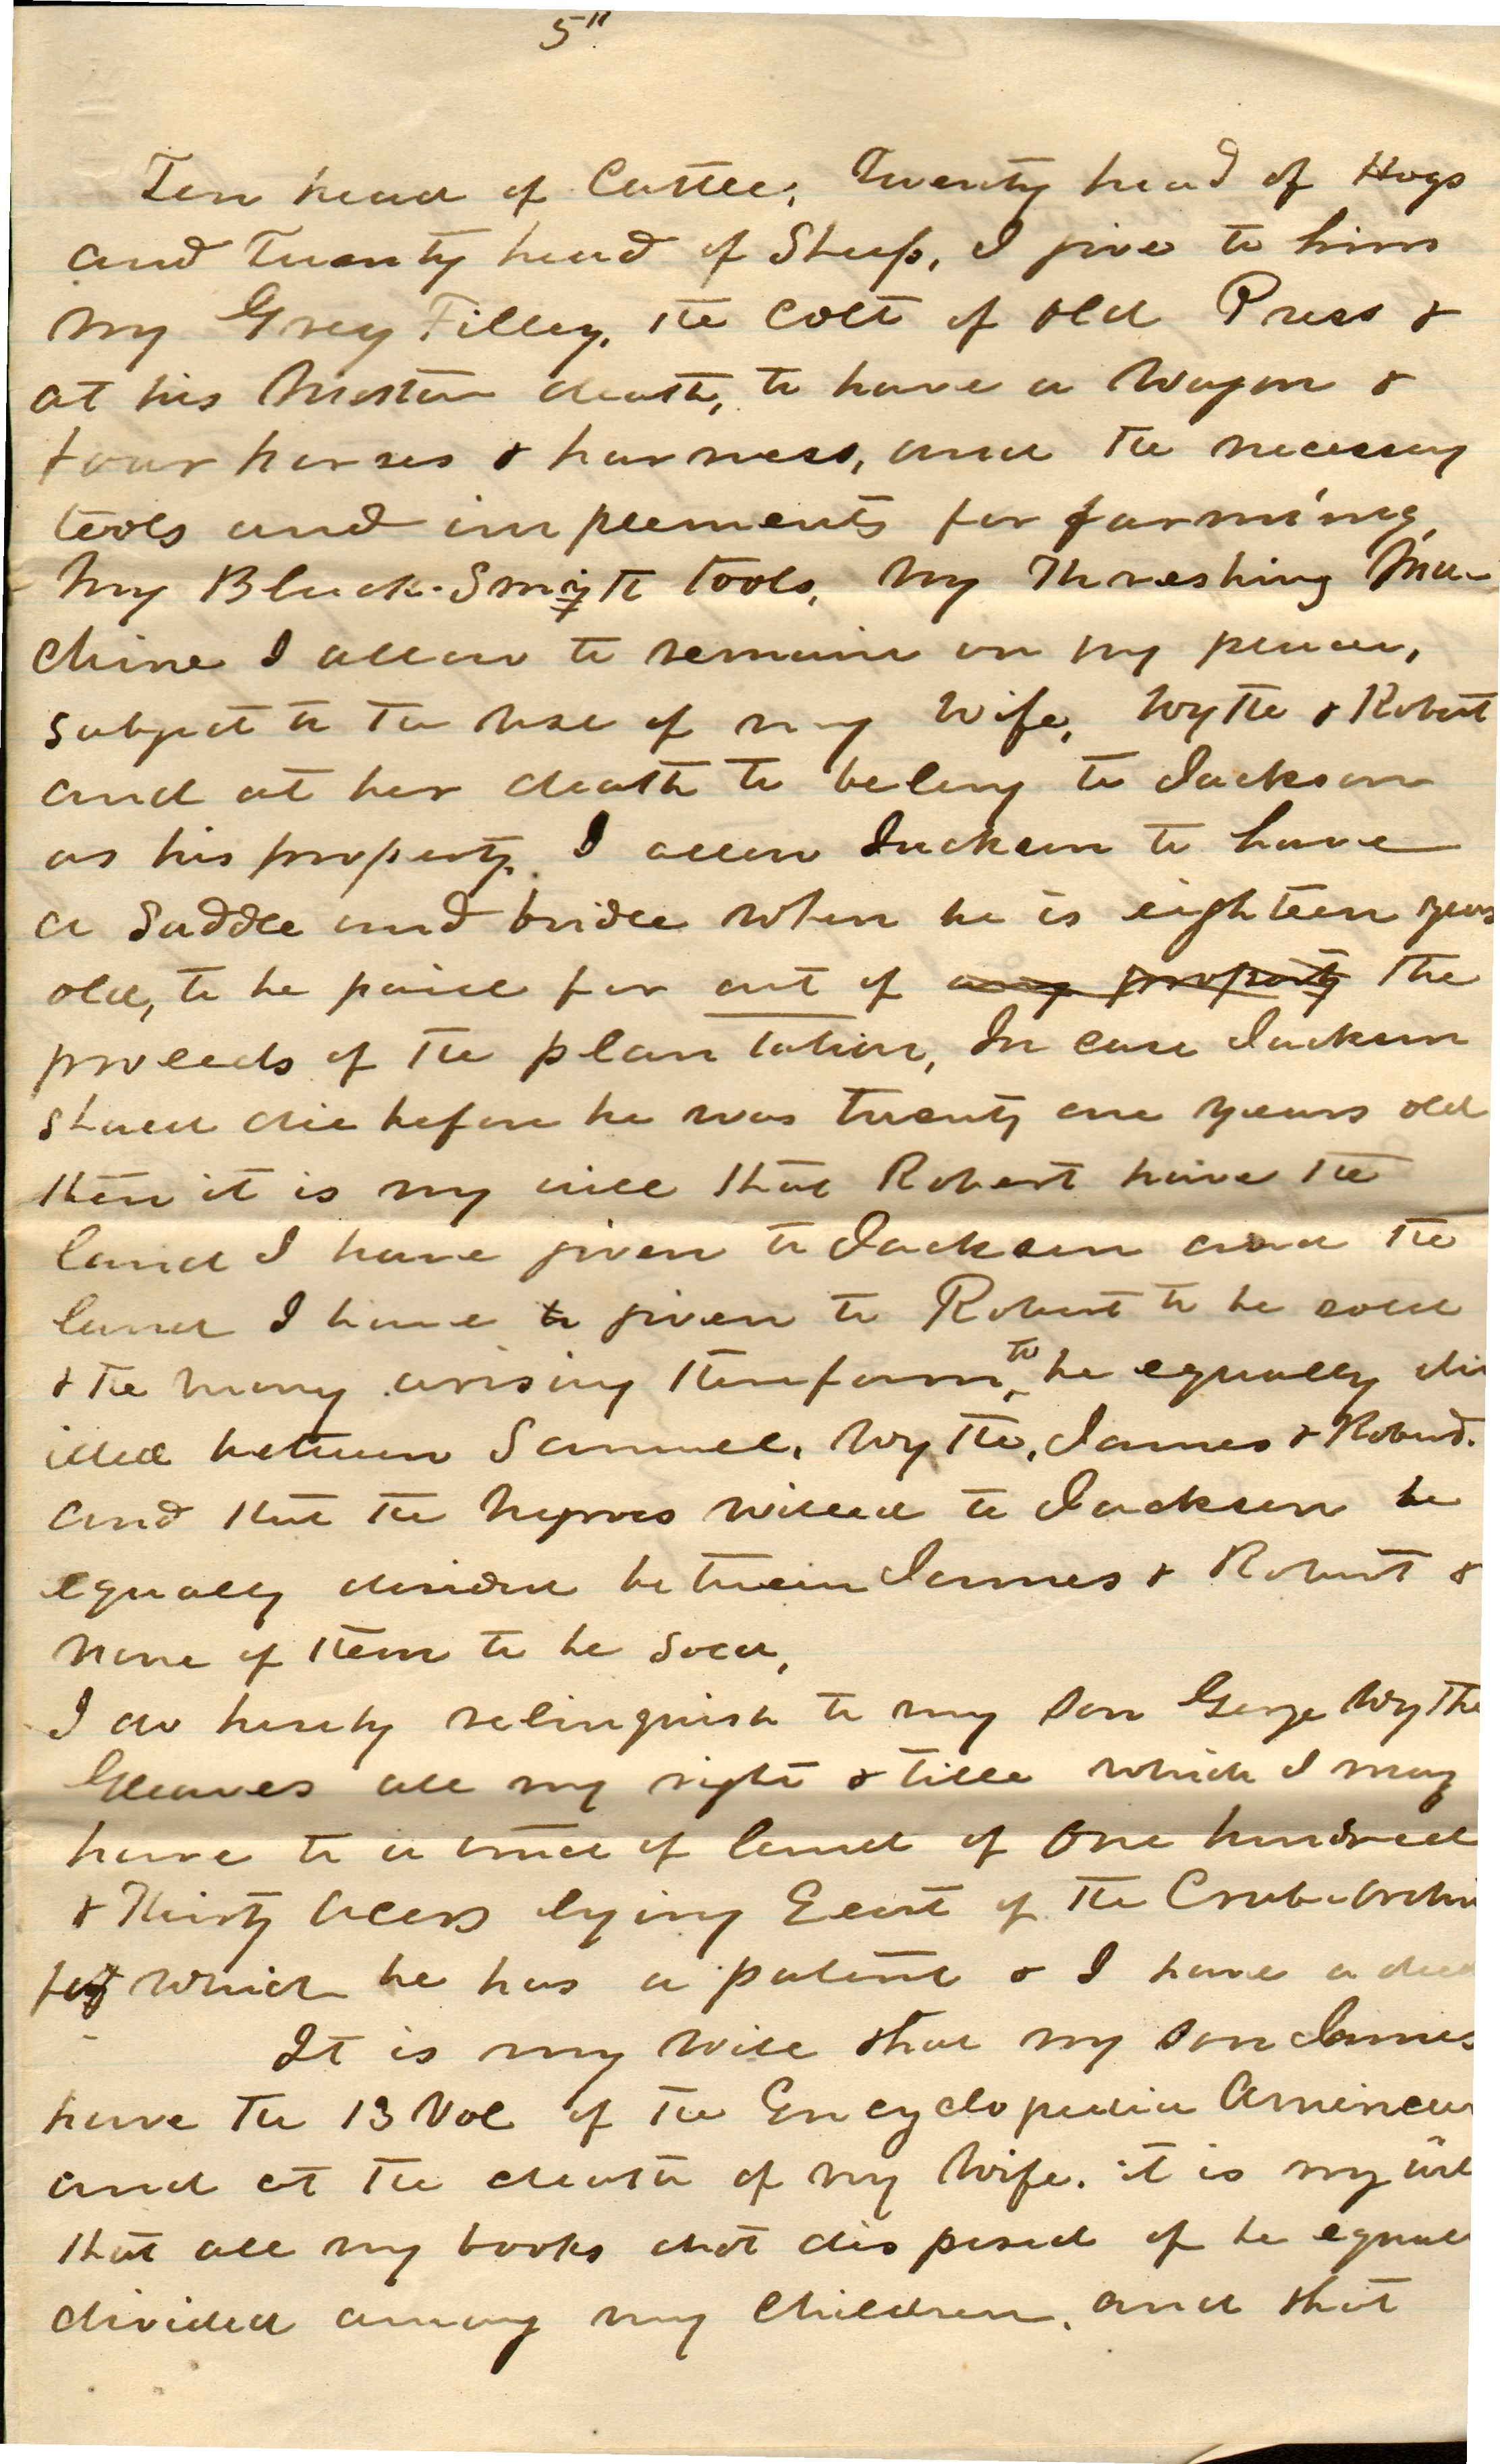 5"
Ten head of Cattle, Twenty head of Hogs
and Twenty head of Sheep, I give to him
my Grey Filley, the Colt of old Press &
at his Mother death, to have a Wagon &
four horses & harness, and the necessary
tools and implements for farming,
My Black-Smith tools, My Threshing Ma-
chine I allow to remain on my place,
subject to the use of my Wife, Wythe & Robert
and at her death to belong to Jackson
as his property. I allow Jackson to have
a Saddle and bridle when he is eighteen years
old, to be paid for out of any property the
proceeds of the plantation, In case Jackson
should die before he was twenty one years old
then it is my will that Robert have the
land I have given to Jackson and the
land I have to given to Robert to be sold
& the money arising therefrom, to be equally div
ided between Samuel, Wythe, James & Robert.
and that the Negroes willed to Jackson be
equally divided between James & Robert &
none of them to be sold,
I do hereby relinquish to my Son George Wythe
Gleaves all my right & title which I may
have to a tract of land of One hundred
& Thirty Acers lying East of the Crab-orchi
for which he has a patent & I have a deed
It is my will that my Son James
have the 13 Vol of the Encyclopedia American
and at the death of my Wife. it is my will
that all my books not disposed of be equall
divided among my Children. and that